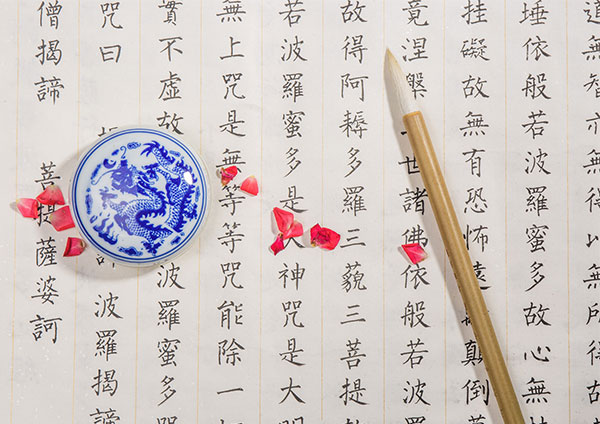 道無智亦無得以無所得故
埵依般若波羅蜜多故心無
挂礙故無有恐怖遠顛倒
竟涅槃世諸佛依般若波羅
故得阿耨多羅三藐三菩提故
若波羅蜜多是大神咒是大明
無上咒是無等等咒能除一切
實不虛故波羅蜜多咒
咒曰 波羅揭諦
僧揭諦 菩提薩婆訶